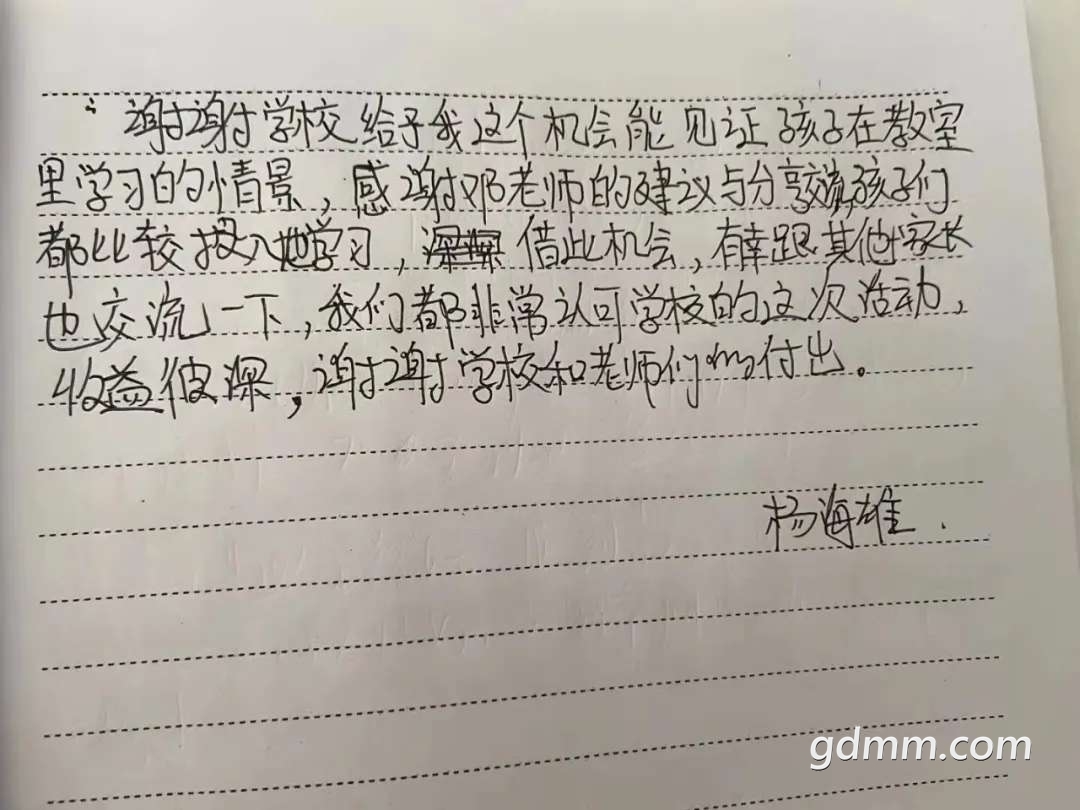 谢谢学校给予我这个机会能见证孩子在教室
里学习的情景，感谢邓老师的建议与分享，孩子们
都比较投入地学习，借此机会，有幸跟其他家长
也交流一下，我们都非常认可学校的这次活动，
收益彼深，谢谢学校和老师们的付出。
杨海雄．
gdmm.com